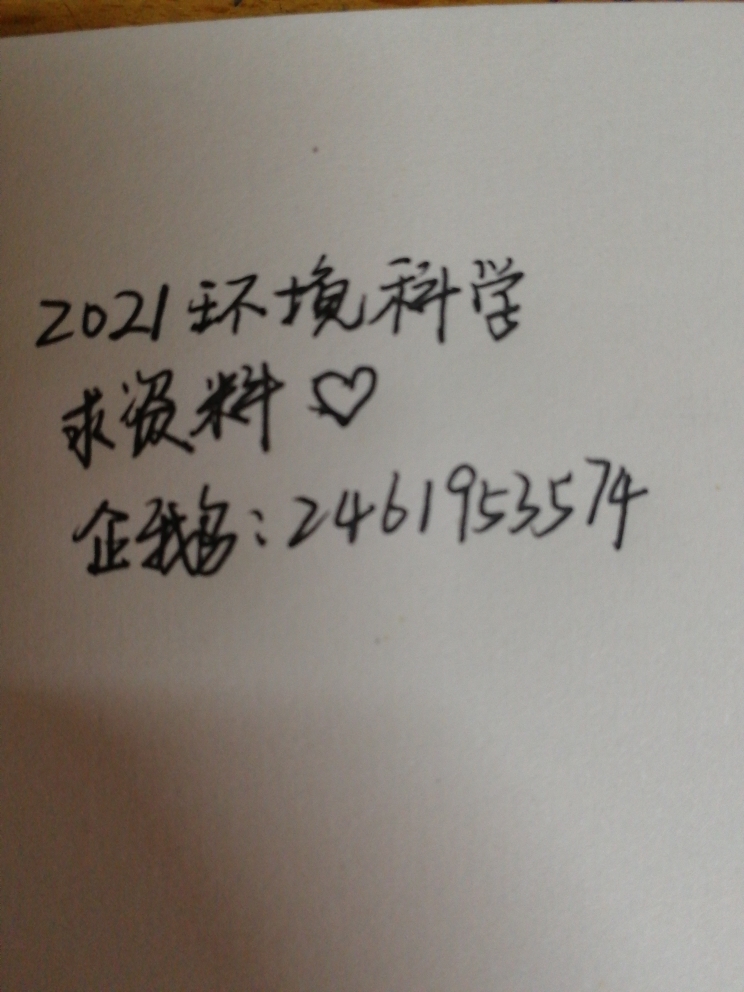 2021环境科学
求资料♡
企鹅：2461953574